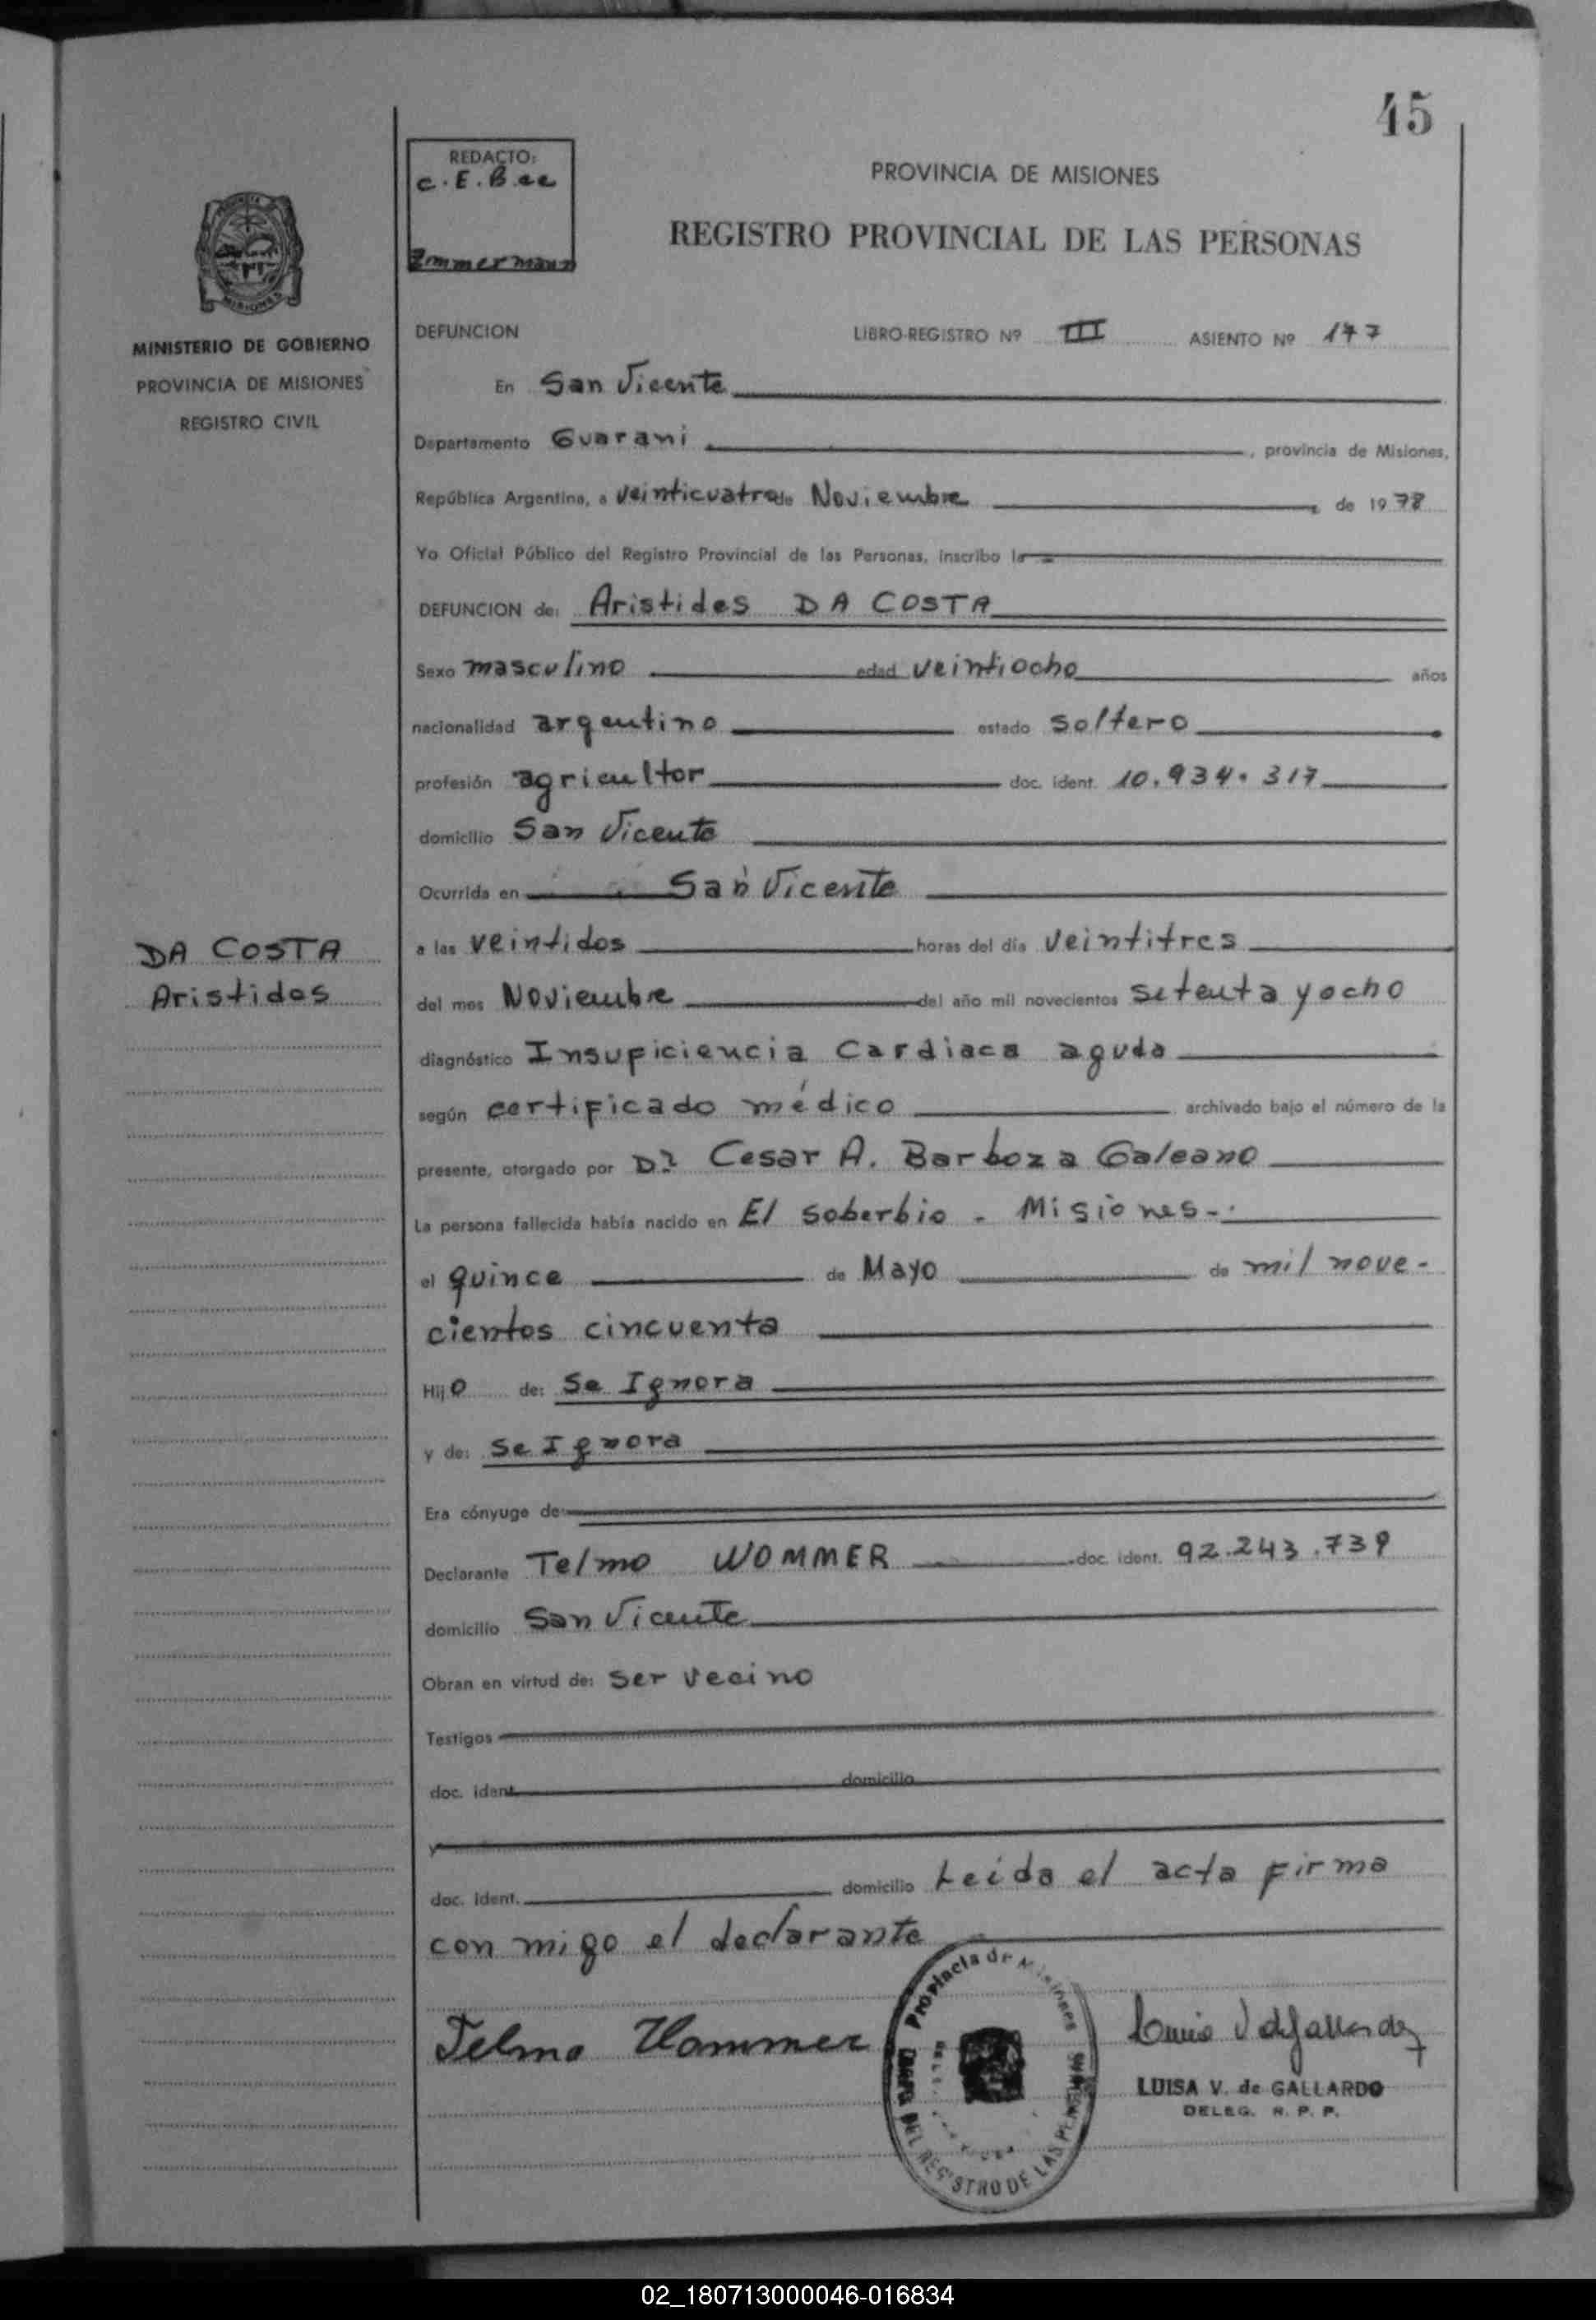 45
REDACTO:
C. E. B ee
Zimmermann
PROVINCIA DE MISIONES
REGISTRO PROVINCIAL DE LAS PERSONAS
MINISTERIO DE GOBIERNO
PROVINCIA DE MISIONES
REGISTRO CIVIL
DEFUNCION LIBRO-REGISTRO Nº III ASIENTO Nº 147
En San Vicente
Departamento Guarani, provincia de Misiones,
República Argentina, a veinticuatro de Noviembre, de 1978
Yo Oficial Público del Registro Provincial de las Personas, inscribo la
DEFUNCION de: Aristides DA COSTA
Sexo masculino edad veintiocho años
nacionalidad argentino estado soltero
profesión agricultor doc. ident. 10.934.317
domicilio San Vicente
Ocurrida en San Vicente
DA COSTA
Aristides
a las veintidos horas del día veintitres
del mes Noviembre del año mil novecientos setenta y ocho
diagnóstico Insuficiencia Cardiaca aguda
según certificado médico archivado bajo el número de la
presente, otorgado por Dr Cesar A. Barboza Galeano
La persona fallecida había nacido en El Soberbio - Misiones-.
el quince de Mayo de mil nove-
cientos cincuenta
Hijo de: Se Ignora
y de: Se Ignora
Era cónyuge de
Declarante Telmo WOMMER doc. ident. 92.243.739
domicilio San Vicente
Obran en virtud de: ser vecino
Testigos
doc. ident. domicilio
y
doc. ident. domicilio Leida el acta firma
con migo el declarante
Telmo Wommer
Provincia de Misiones
DEL REGISTRO DE LAS PERSONAS
LUISA V. de GALLARDO
DELEG. R. P. P.
02_180713000046-016834